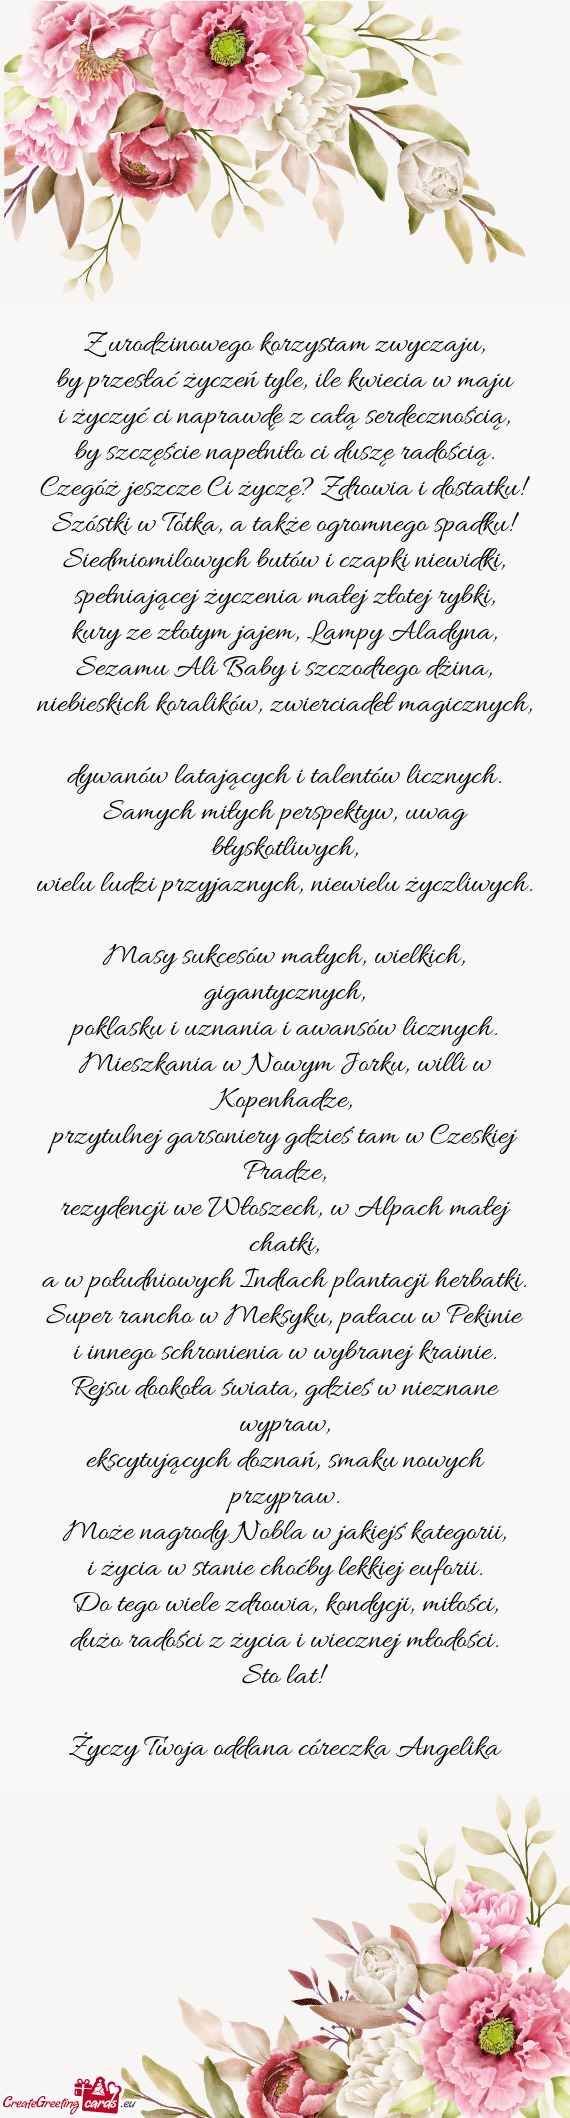 Z urodzinowego korzystam zwyczaju,
by przesłać życzeń tyle, ile kwiecia w maju
i życzyć ci naprawdę z całą serdecznością,
by szczęście napełniło ci duszę radością.
Czegóż jeszcze Ci życzę? Zdrowia i dostatku!
Szóstki w Totka, a także ogromnego spadku!
Siedmiomilowych butów i czapki niewidki,
spełniającej życzenia małej złotej rybki,
kury ze złotym jajem, Lampy Aladyna,
Sezamu Ali Baby i szczodrego dżina,
niebieskich koralików, zwierciadeł magicznych,
dywanów latających i talentów licznych.
Samych miłych perspektyw, uwag
błyskotliwych,
wielu ludzi przyjaznych, niewielu życzliwych.
Masy sukcesów małych, wielkich,
gigantycznych,
poklasku i uznania i awansów licznych.
Mieszkania w Nowym Jorku, willi w
Kopenhadze,
przytulnej garsoniery gdzieś tam w Czeskiej
Pradze,
rezydencji we Włoszech, w Alpach małej
chatki,
a w południowych Indiach plantacji herbatki.
Super rancho w Meksyku, pałacu w Pekinie
i innego schronienia w wybranej krainie.
Rejsu dookoła świata, gdzieś w nieznane
wypraw,
ekscytujących doznań, smaku nowych
przypraw.
Może nagrody Nobla w jakiejś kategorii,
i życia w stanie choćby lekkiej euforii.
Do tego wiele zdrowia, kondycji, miłości,
dużo radości z życia i wiecznej młodości.
Sto lat!
Życzy Twoja oddana córeczka Angelika
CreateGreeting cards .eu